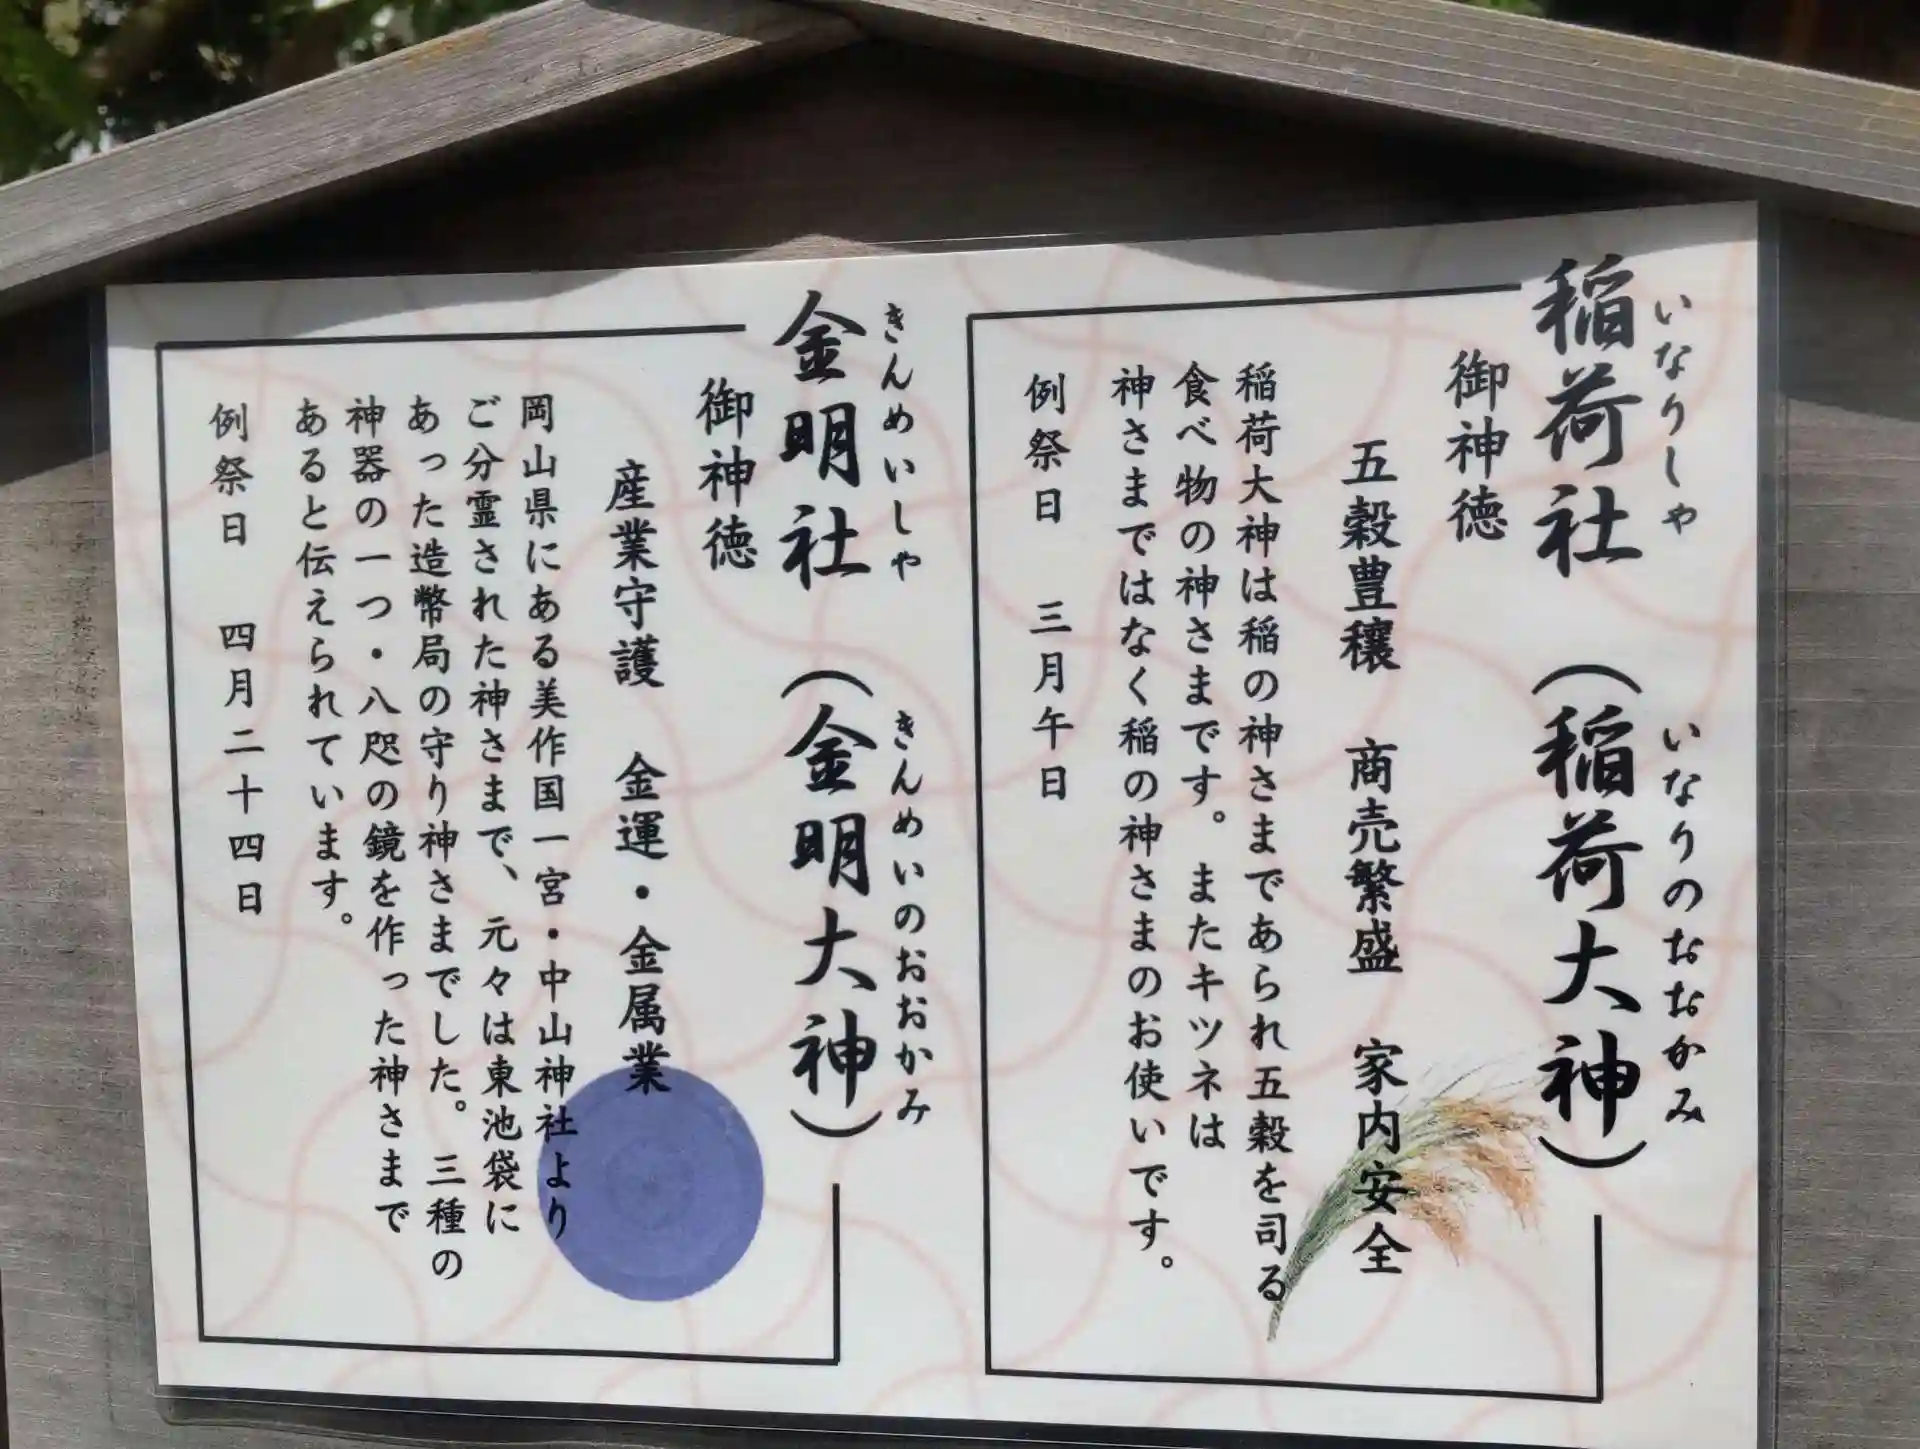 稲荷社 (稲荷大神)
いなりしゃ いなりのおおかみ
御神徳
五穀豊穣 商売繁盛 家内安全
稲荷大神は稲の神さまであられ五穀を司る
食べ物の神さまです。またキツネは
神さまではなく稲の神さまのお使いです。
例祭日 三月午日
金明社 (金明大神)
きんめいしゃ きんめいのおおかみ
御神徳
産業守護 金運・金属業
岡山県にある美作国一宮・中山神社より
ご分霊された神さまで、元々は東池袋に
あった造幣局の守り神さまでした。三種の
神器の一つ・八咫の鏡を作った神さまで
あると伝えられています。
例祭日 四月二十四日